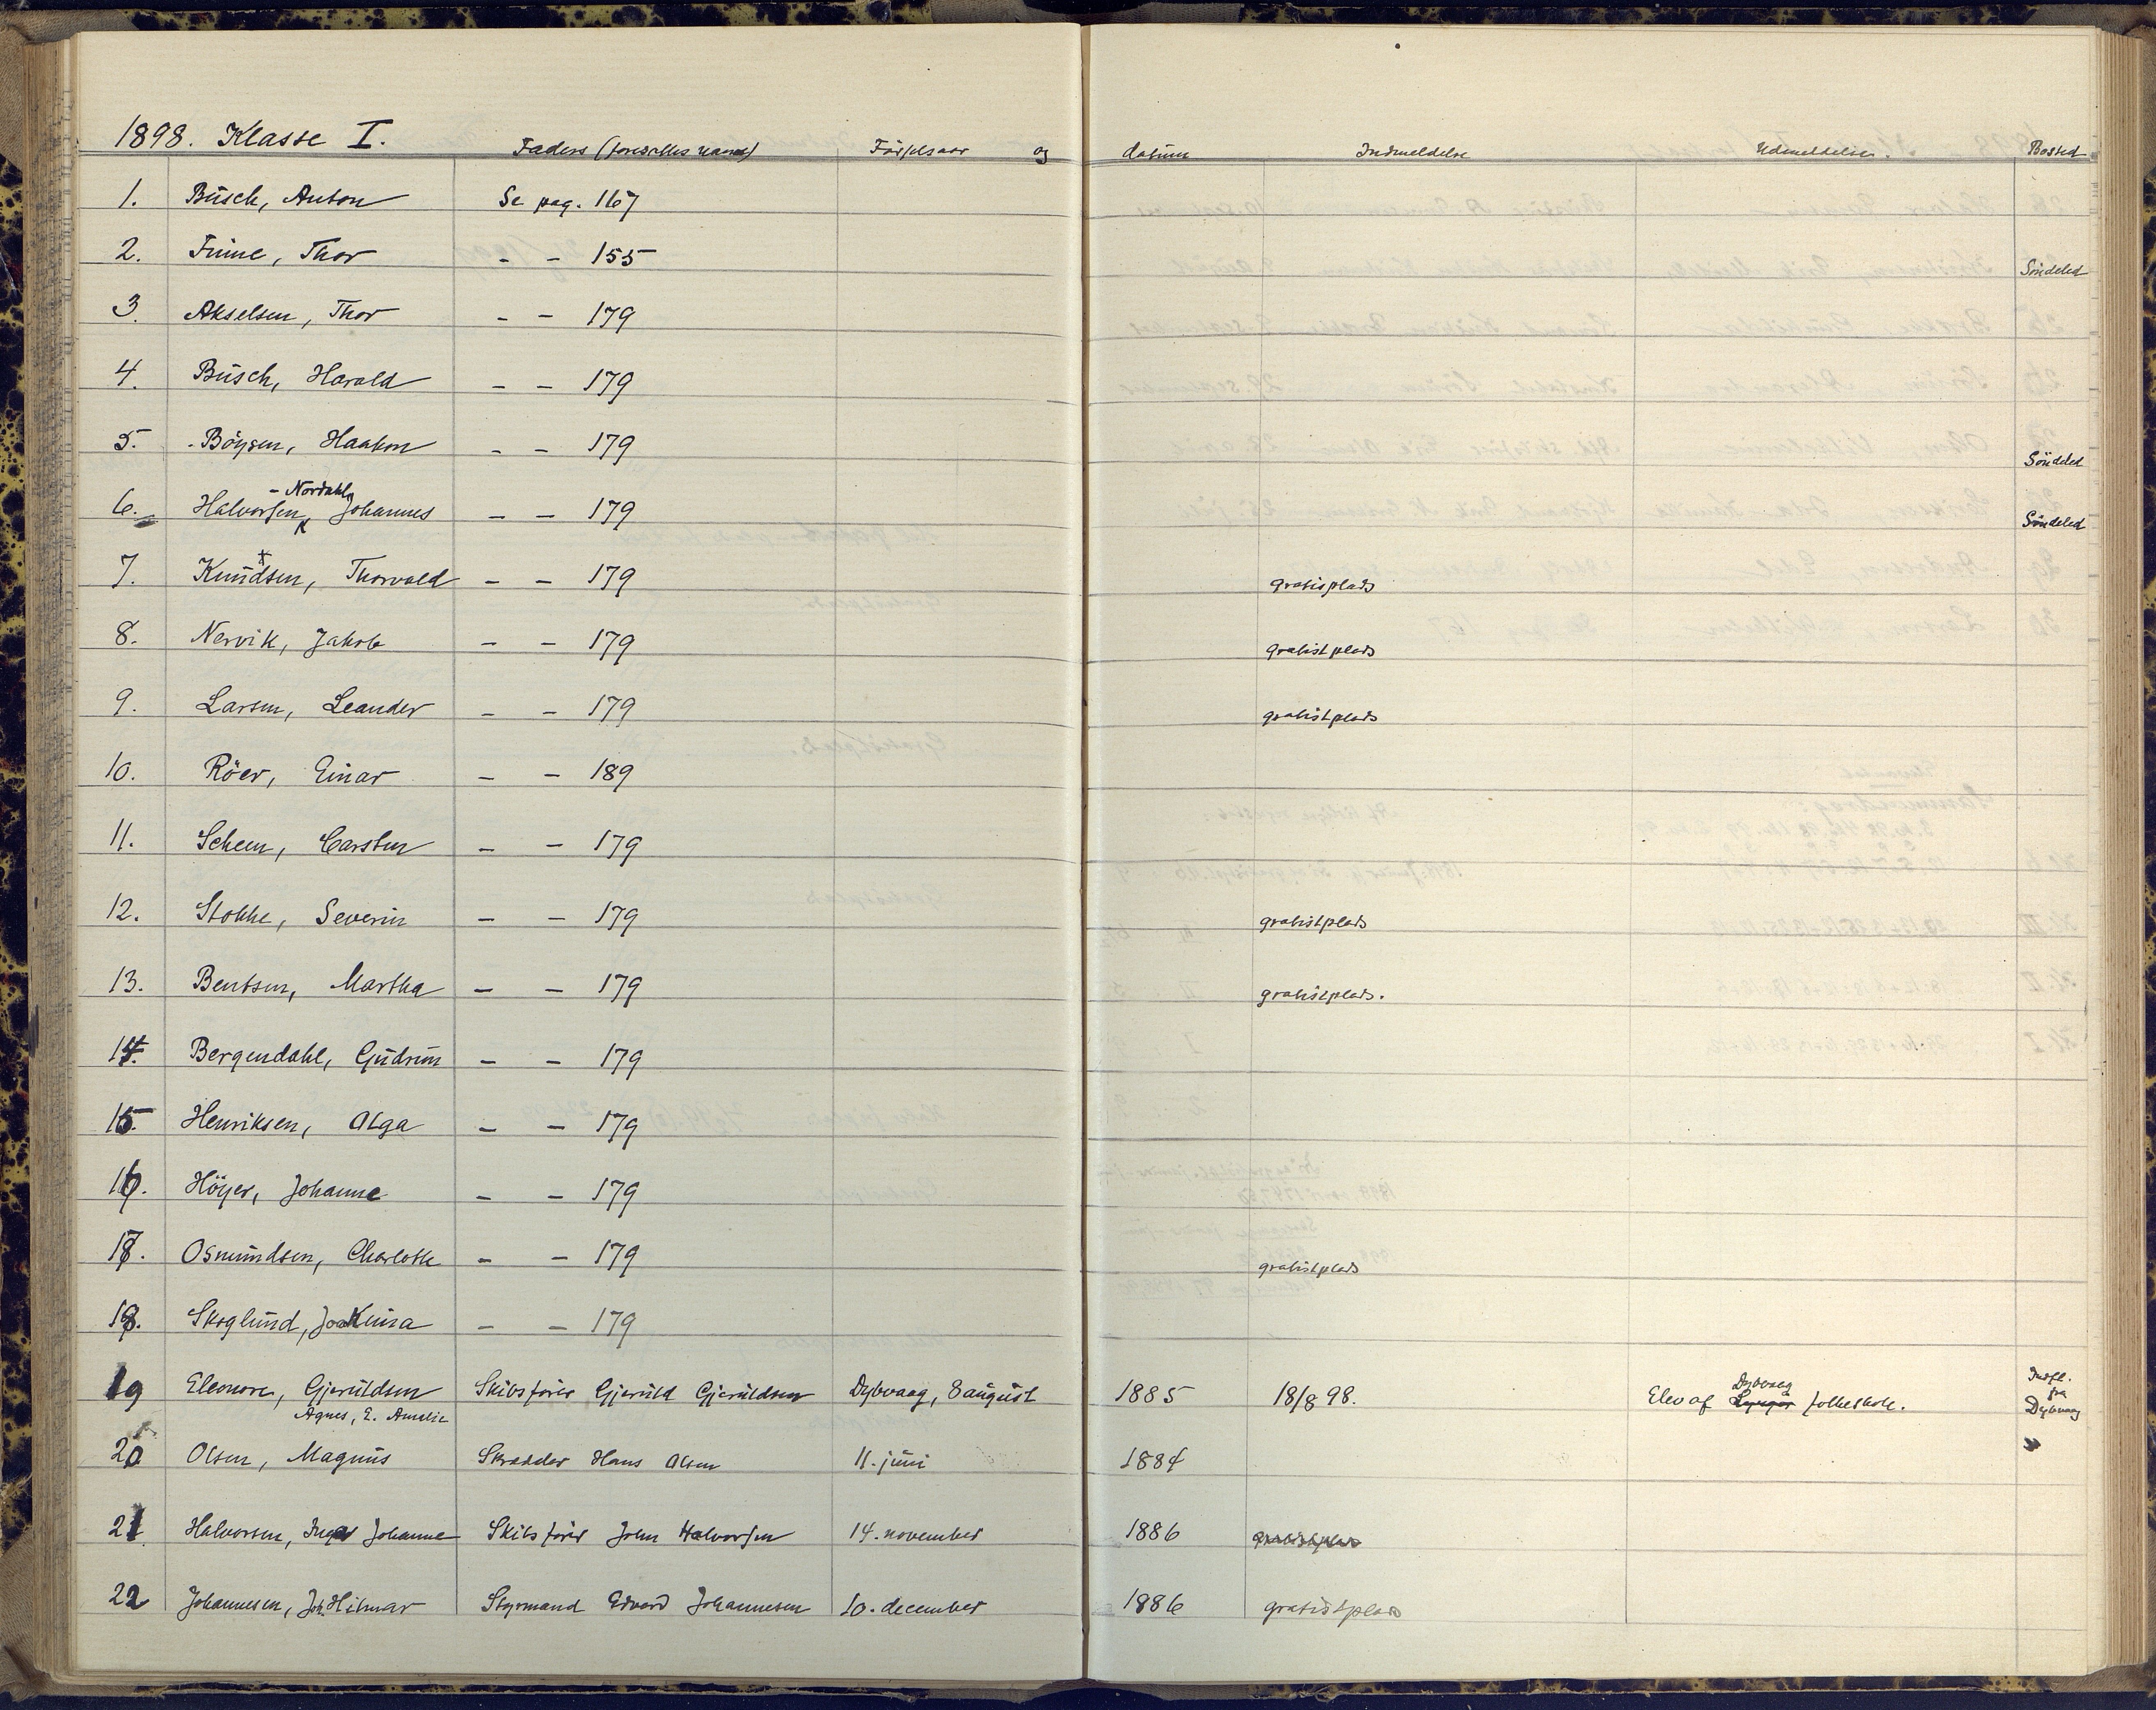 1898. Klasse I. Faders (foresattes navn) Fødselsaar og datum Indmeldelse Udmeldelse. Bosted
1. Büsch, Anton Se pag. 167
2. Finne, Thor - - 155 Söndeled
3. Akselsen, Thor - - 179
4. Büsch, Harald - - 179
5. Böysen, Haakon - - 179 Söndeled
- Nordahl
6. Halvorsen, Johannes - - 179 Söndeled
7. Knüdsen, Thorvald - - 179 gratistplads
8. Nervik, Jakob - - 179 gratistplads
9. Larsen, Leander - - 179 gratistplads
10. Röer, Einar - - 189
11. Scheen, Carsten - - 179
12. Stokke, Severin - - 179 gratistplads
13. Bentsen, Martha - - 179 gratistplads.
14. Bergendahl, Güdrün - - 179
15. Henriksen, Olga - - 179
16. Höyer, Johanne - - 179
17. Osmündsen, Charlotte - - 179 gratistplads
18. Skoglünd, Joakima - - 179
Dybvaag
19 Eleonore, Gjerüldsen Skibsfører Gjerüld Gjerüldsen Dybvaag, 8 aügüst 1885 18/8 98. Elev af Lyngør folkeskole. Indfl. fra Dybvaag
Agnes, E. Amalie
20 Olsen, Magnüs Skrædder Hans Olsen 11. jüni 1884
21. Halvorsen, Inga Johanne Skibsfører John Halvorsen 14. november 1886 gratistplads
22 Johannesen, Joh. Hilmar Styrmand Edvard Johannesen 10. december 1886 gratistplads